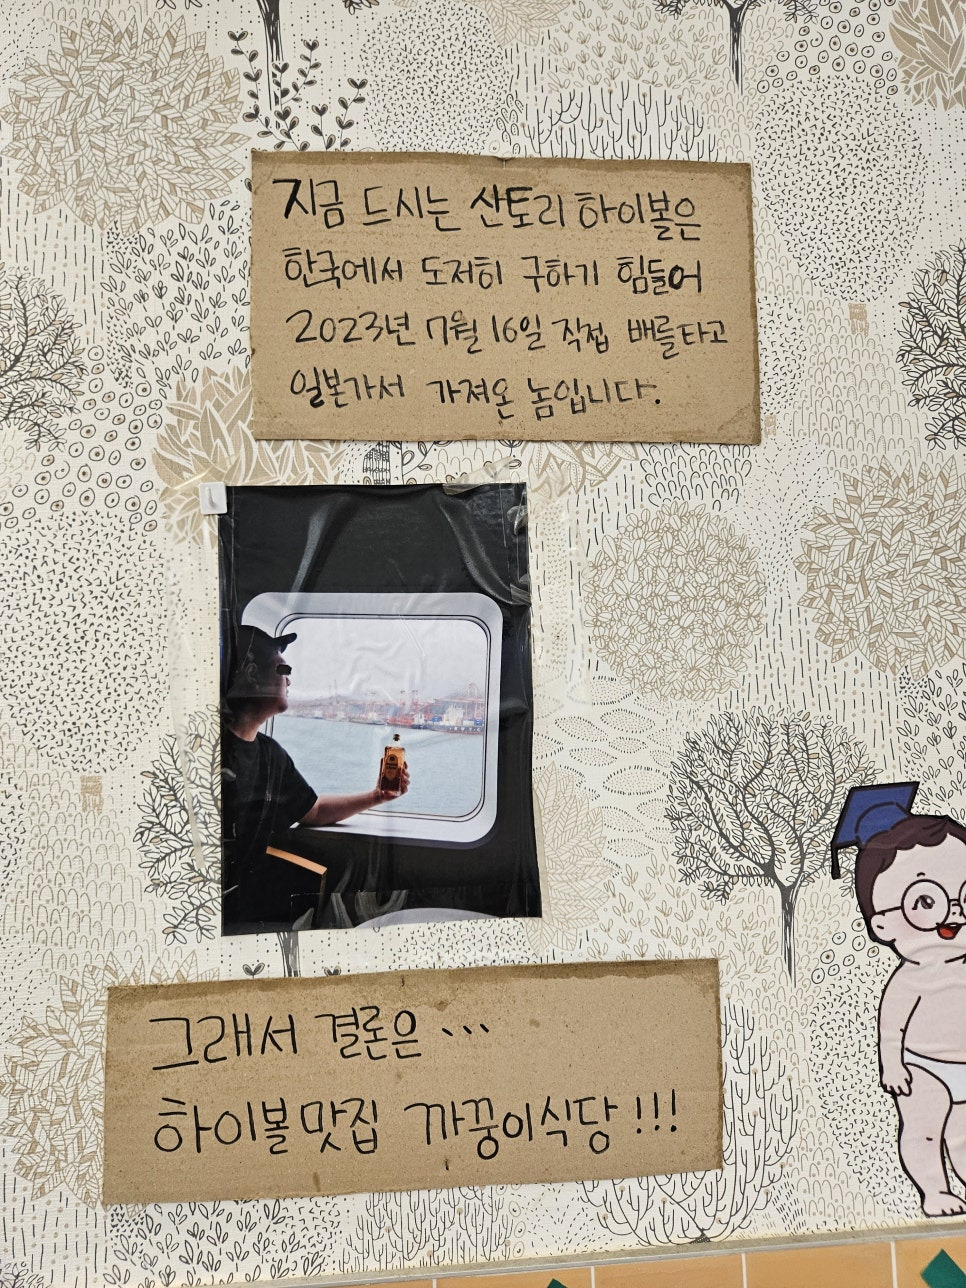 지금 드시는 산토리 하이볼은
한국에서 도저히 구하기 힘들어
2023년 7월 16일 직접 배를타고
일본가서 가져온 놈입니다.
그래서 결론은...
하이볼맛집 까꿍이식당!!!